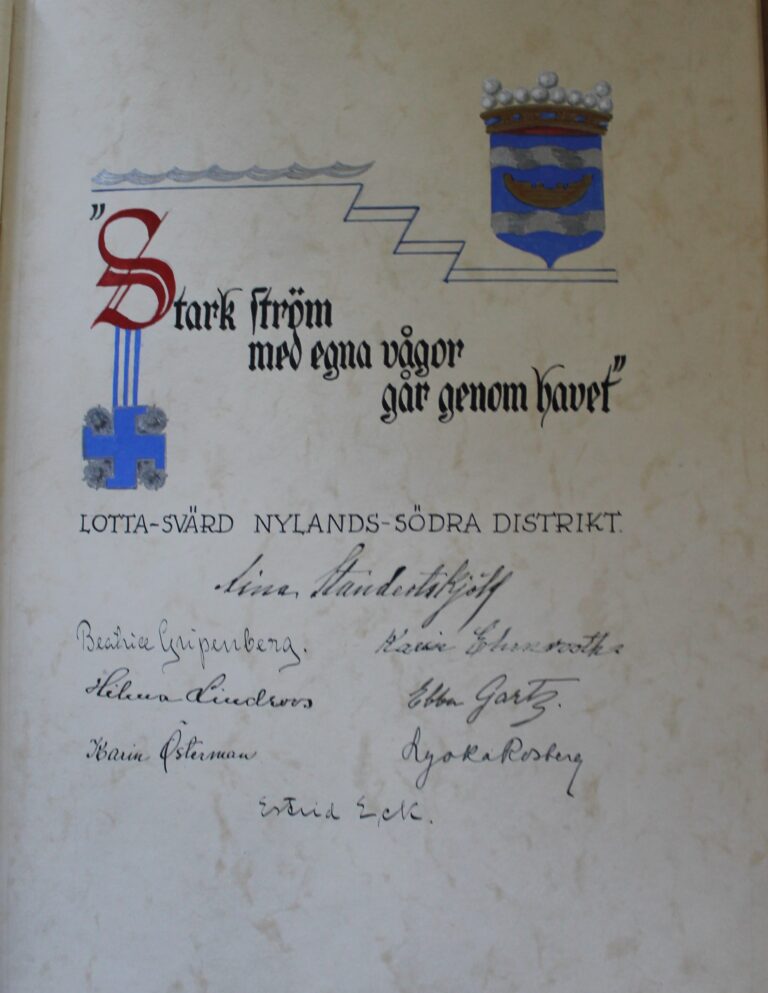 "Stark ström
med egna vågor
går genom havet"
LOTTA-SVÄRD NYLANDS-SÖDRA DISTRIKT.
Aina Standertskjöld
Beatrice Gripenberg. Karin Ehrnrooth
Hilma Lindroos Ebba Gartz.
Karin Österman Rosberg
Estrid Eck.